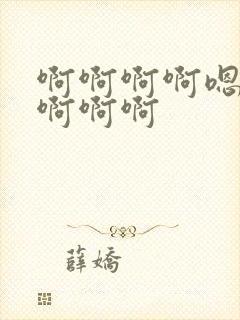 啊啊啊啊嗯
啊啊啊
薛嬌